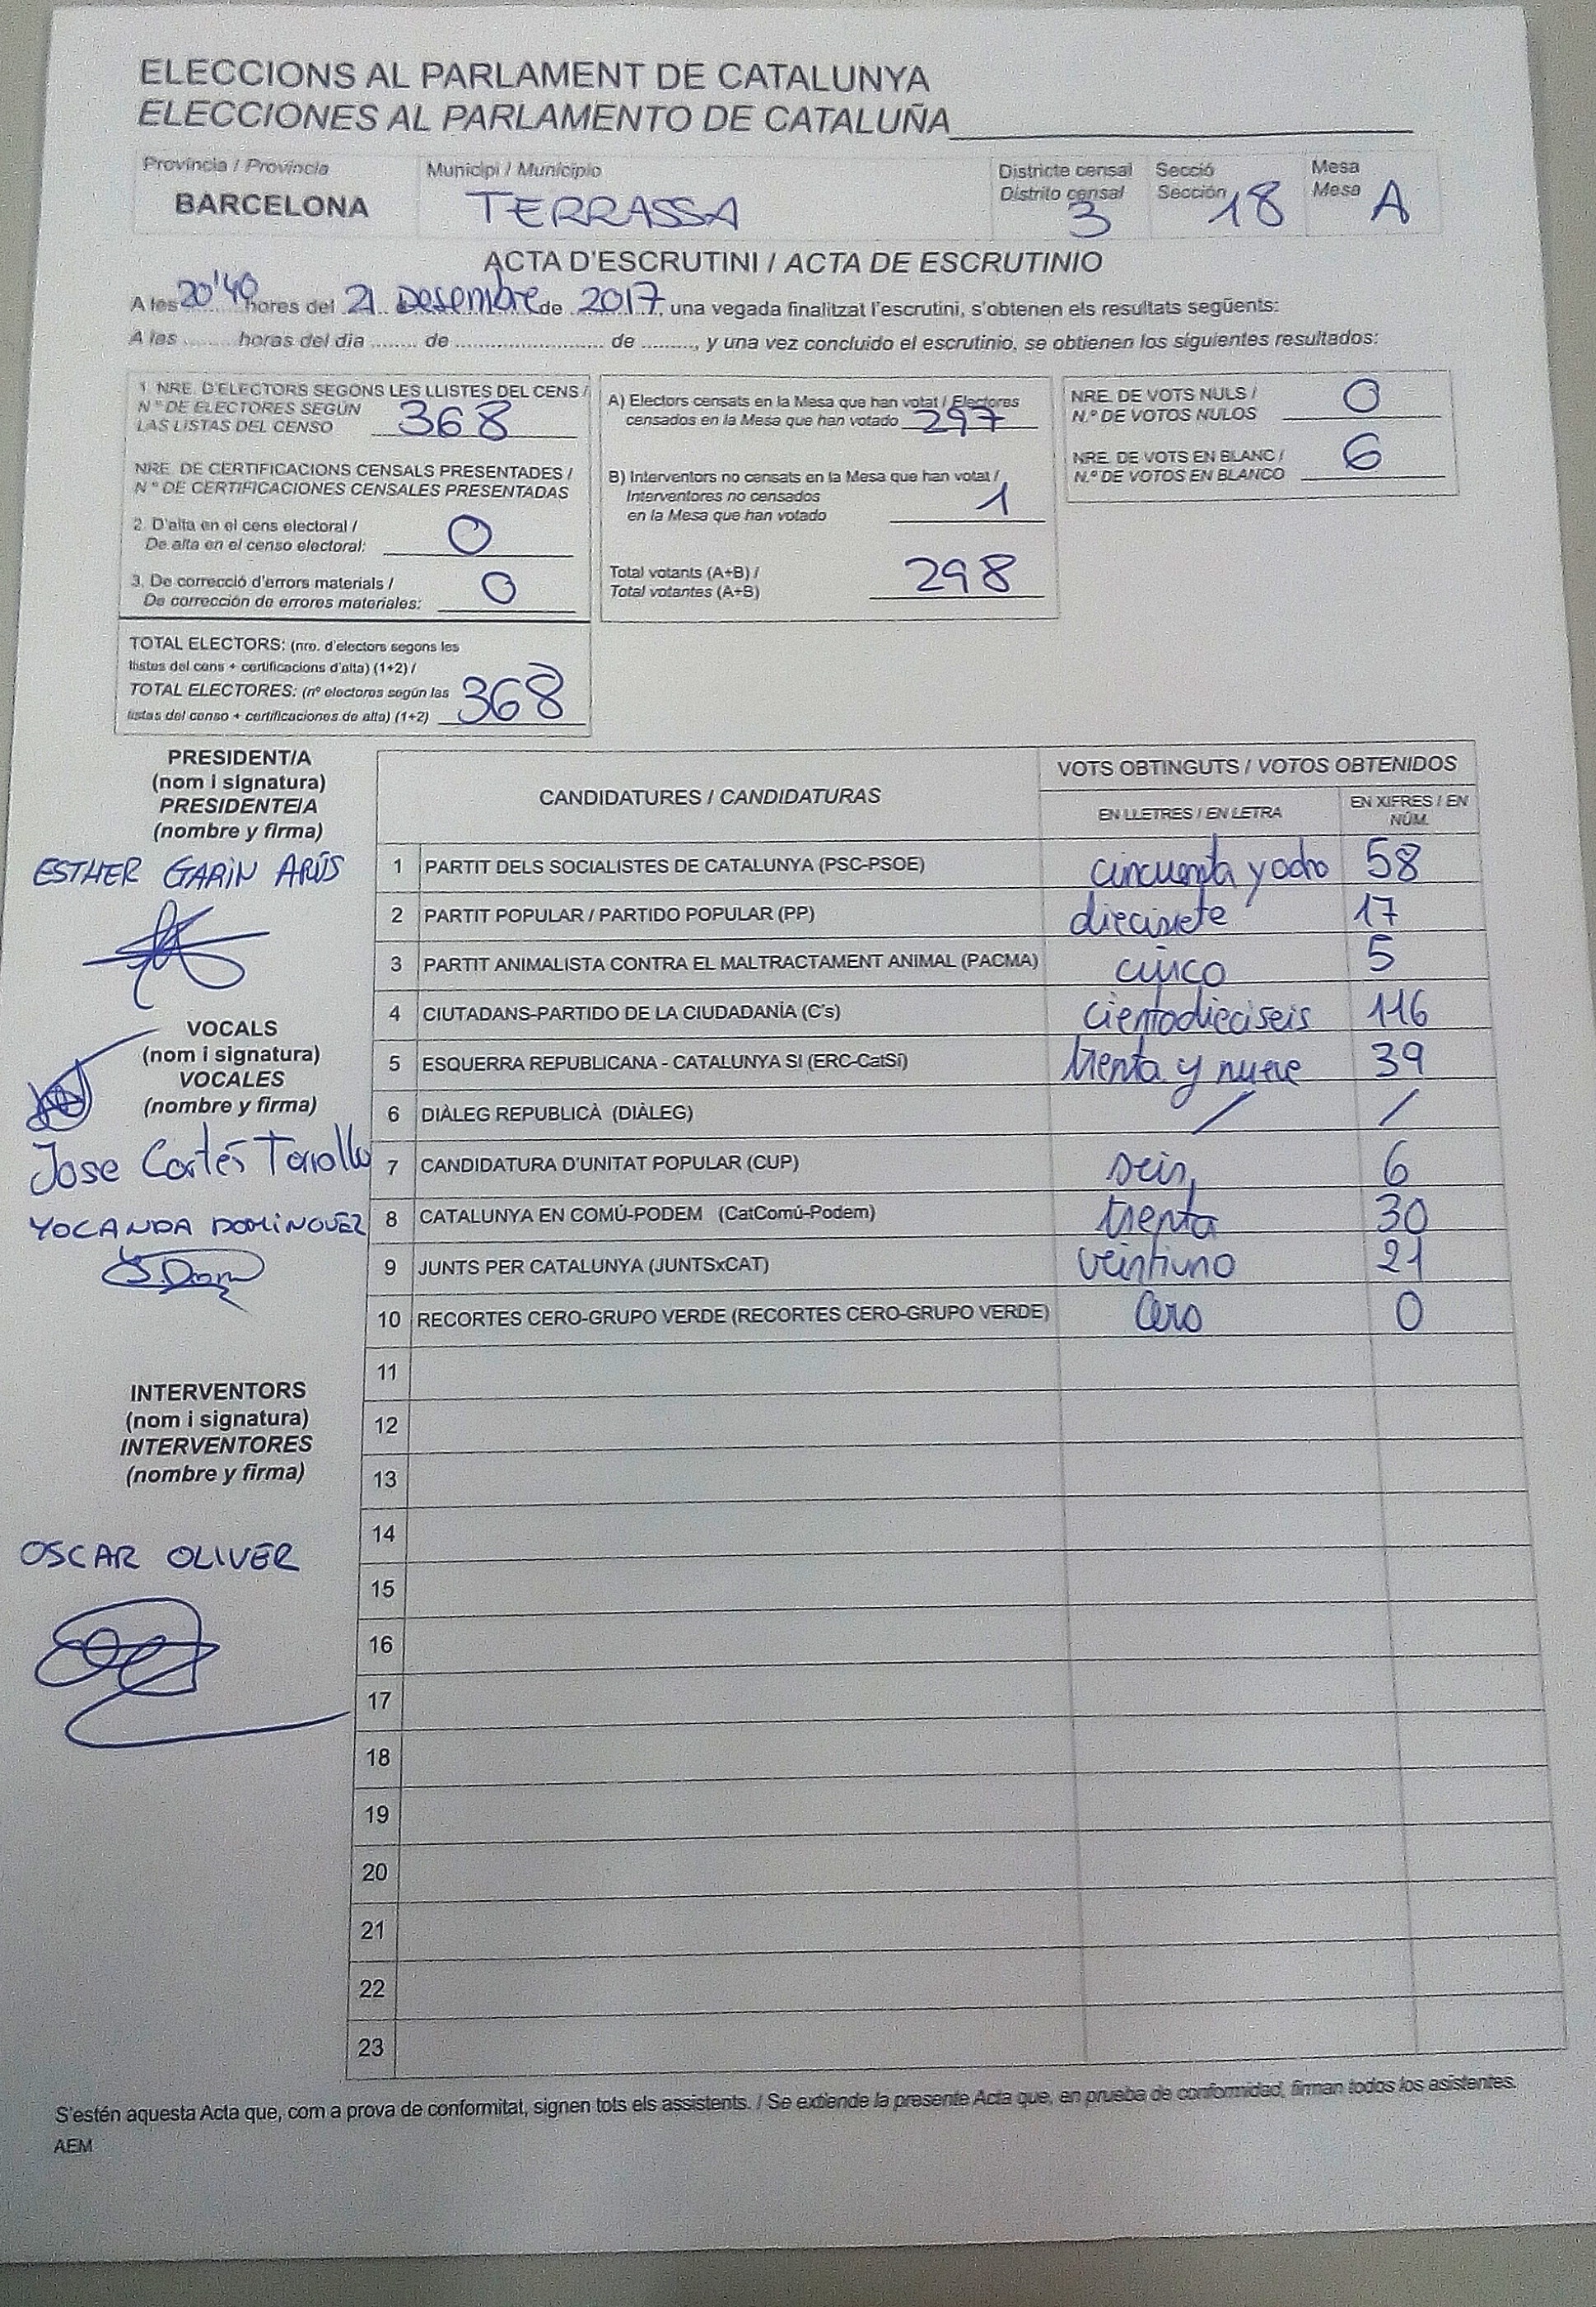 ELECCIONS AL PARLAMENT DE CATALUNYA
ELECCIONES AL PARLAMENTO DE CATALUÑA
Província / Provincia
BARCELONA
Municipi / Municipio
TERRASSA
Districte censal
Distrito censal
3
Secció
Sección
18
Mesa
Mesa
A
ACTA D'ESCRUTINI / ACTA DE ESCRUTINIO
A les 20'40 hores del 21 Desembre de 2017, una vegada finalitzat l'escrutini, s'obtenen els resultats següents:
A las ........ horas del día ........ de ........................ de ........, y una vez concluido el escrutinio, se obtienen los siguientes resultados:
1. NRE. D'ELECTORS SEGONS LES LLISTES DEL CENS /
N.º DE ELECTORES SEGÚN
LAS LISTAS DEL CENSO 368
NRE. DE CERTIFICACIONS CENSALS PRESENTADES /
N.º DE CERTIFICACIONES CENSALES PRESENTADAS
2. D'alta en el cens electoral /
De alta en el censo electoral: 0
3. De correcció d'errors materials /
De corrección de errores materiales: 0
TOTAL ELECTORS: (nre. d'electors segons les
llistes del cens + certificacions d'alta) (1+2) /
TOTAL ELECTORES: (nº electores según las
listas del censo + certificaciones de alta) (1+2) 368
A) Electors censats en la Mesa que han votat / Electores
censados en la Mesa que han votado 297
B) Interventors no censats en la Mesa que han votat /
Interventores no censados
en la Mesa que han votado 1
Total votants (A+B) /
Total votantes (A+B) 298
NRE. DE VOTS NULS /
N.º DE VOTOS NULOS 0
NRE. DE VOTS EN BLANC /
N.º DE VOTOS EN BLANCO 6
PRESIDENT/A
(nom i signatura)
PRESIDENTE/A
(nombre y firma)
ESTHER GARIN ARÚS
VOCALS
(nom i signatura)
VOCALES
(nombre y firma)
Jose Cortés
YOLANDA DOMINGUEZ
INTERVENTORS
(nom i signatura)
INTERVENTORES
(nombre y firma)
OSCAR OLIVER
CANDIDATURES / CANDIDATURAS
VOTS OBTINGUTS / VOTOS OBTENIDOS
EN LLETRES / EN LETRA
EN XIFRES / EN
NÚM.
1 PARTIT DELS SOCIALISTES DE CATALUNYA (PSC-PSOE) cincuenta y ocho 58
2 PARTIT POPULAR / PARTIDO POPULAR (PP) diecisiete 17
3 PARTIT ANIMALISTA CONTRA EL MALTRACTAMENT ANIMAL (PACMA) cinco 5
4 CIUTADANS-PARTIDO DE LA CIUDADANÍA (C's) cientodieciseis 116
5 ESQUERRA REPUBLICANA - CATALUNYA SI (ERC-CatSí) trenta y nueve 39
6 DIÀLEG REPUBLICÀ (DIÀLEG) / /
7 CANDIDATURA D'UNITAT POPULAR (CUP) seis 6
8 CATALUNYA EN COMÚ-PODEM (CatComú-Podem) trenta 30
9 JUNTS PER CATALUNYA (JUNTSxCAT) veintiuno 21
10 RECORTES CERO-GRUPO VERDE (RECORTES CERO-GRUPO VERDE) cero 0
11
12
13
14
15
16
17
18
19
20
21
22
23
S'estén aquesta Acta que, com a prova de conformitat, signen tots els assistents. / Se extiende la presente Acta que, en prueba de conformidad, firman todos los asistentes.
AEM